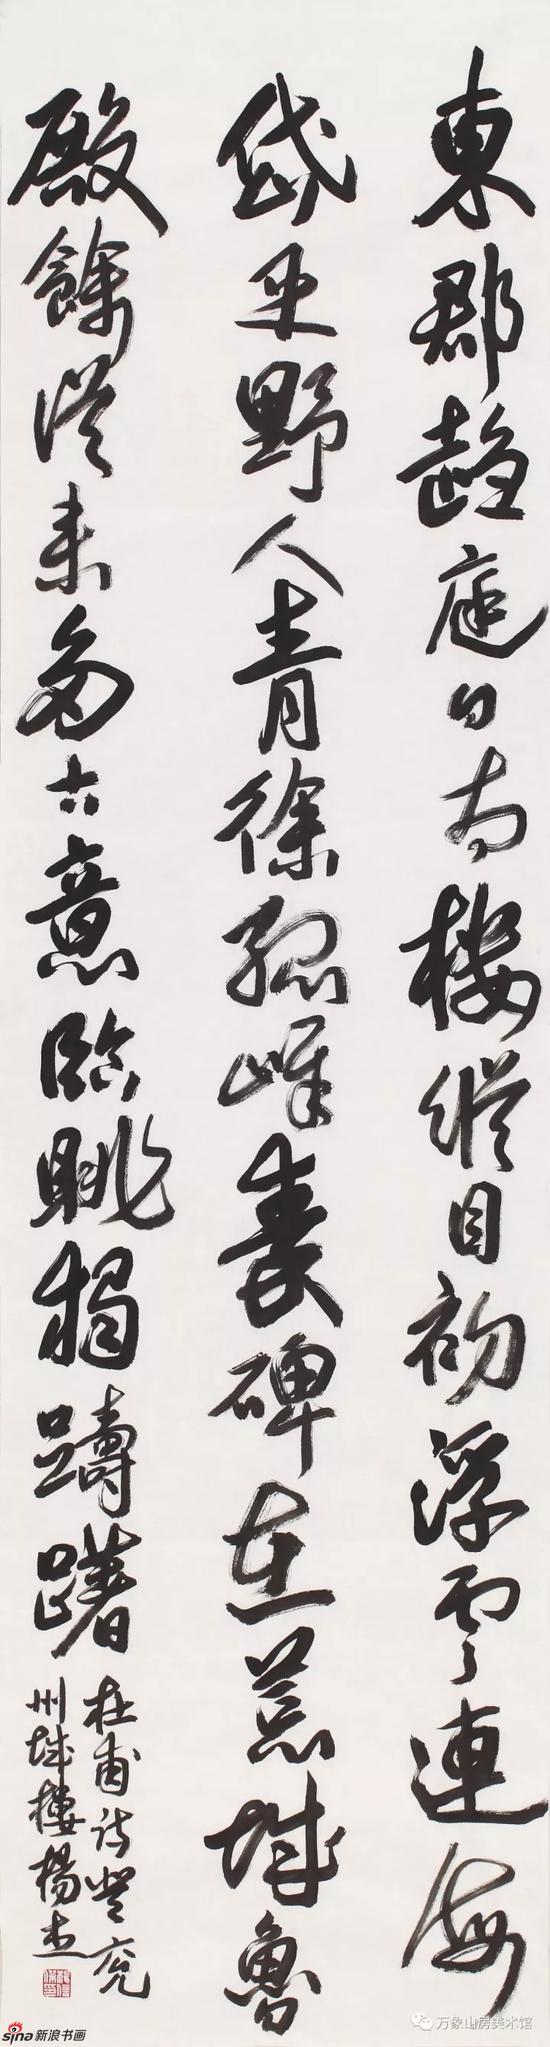 東郡趨庭日南樓縱目初浮雲連海
岱平野入青徐孤峰秦碑在荒城魯
殿餘從來多古意臨眺獨躊躇
杜甫詩登兗
州城樓楊
sina新浪书画
万象山房美术馆